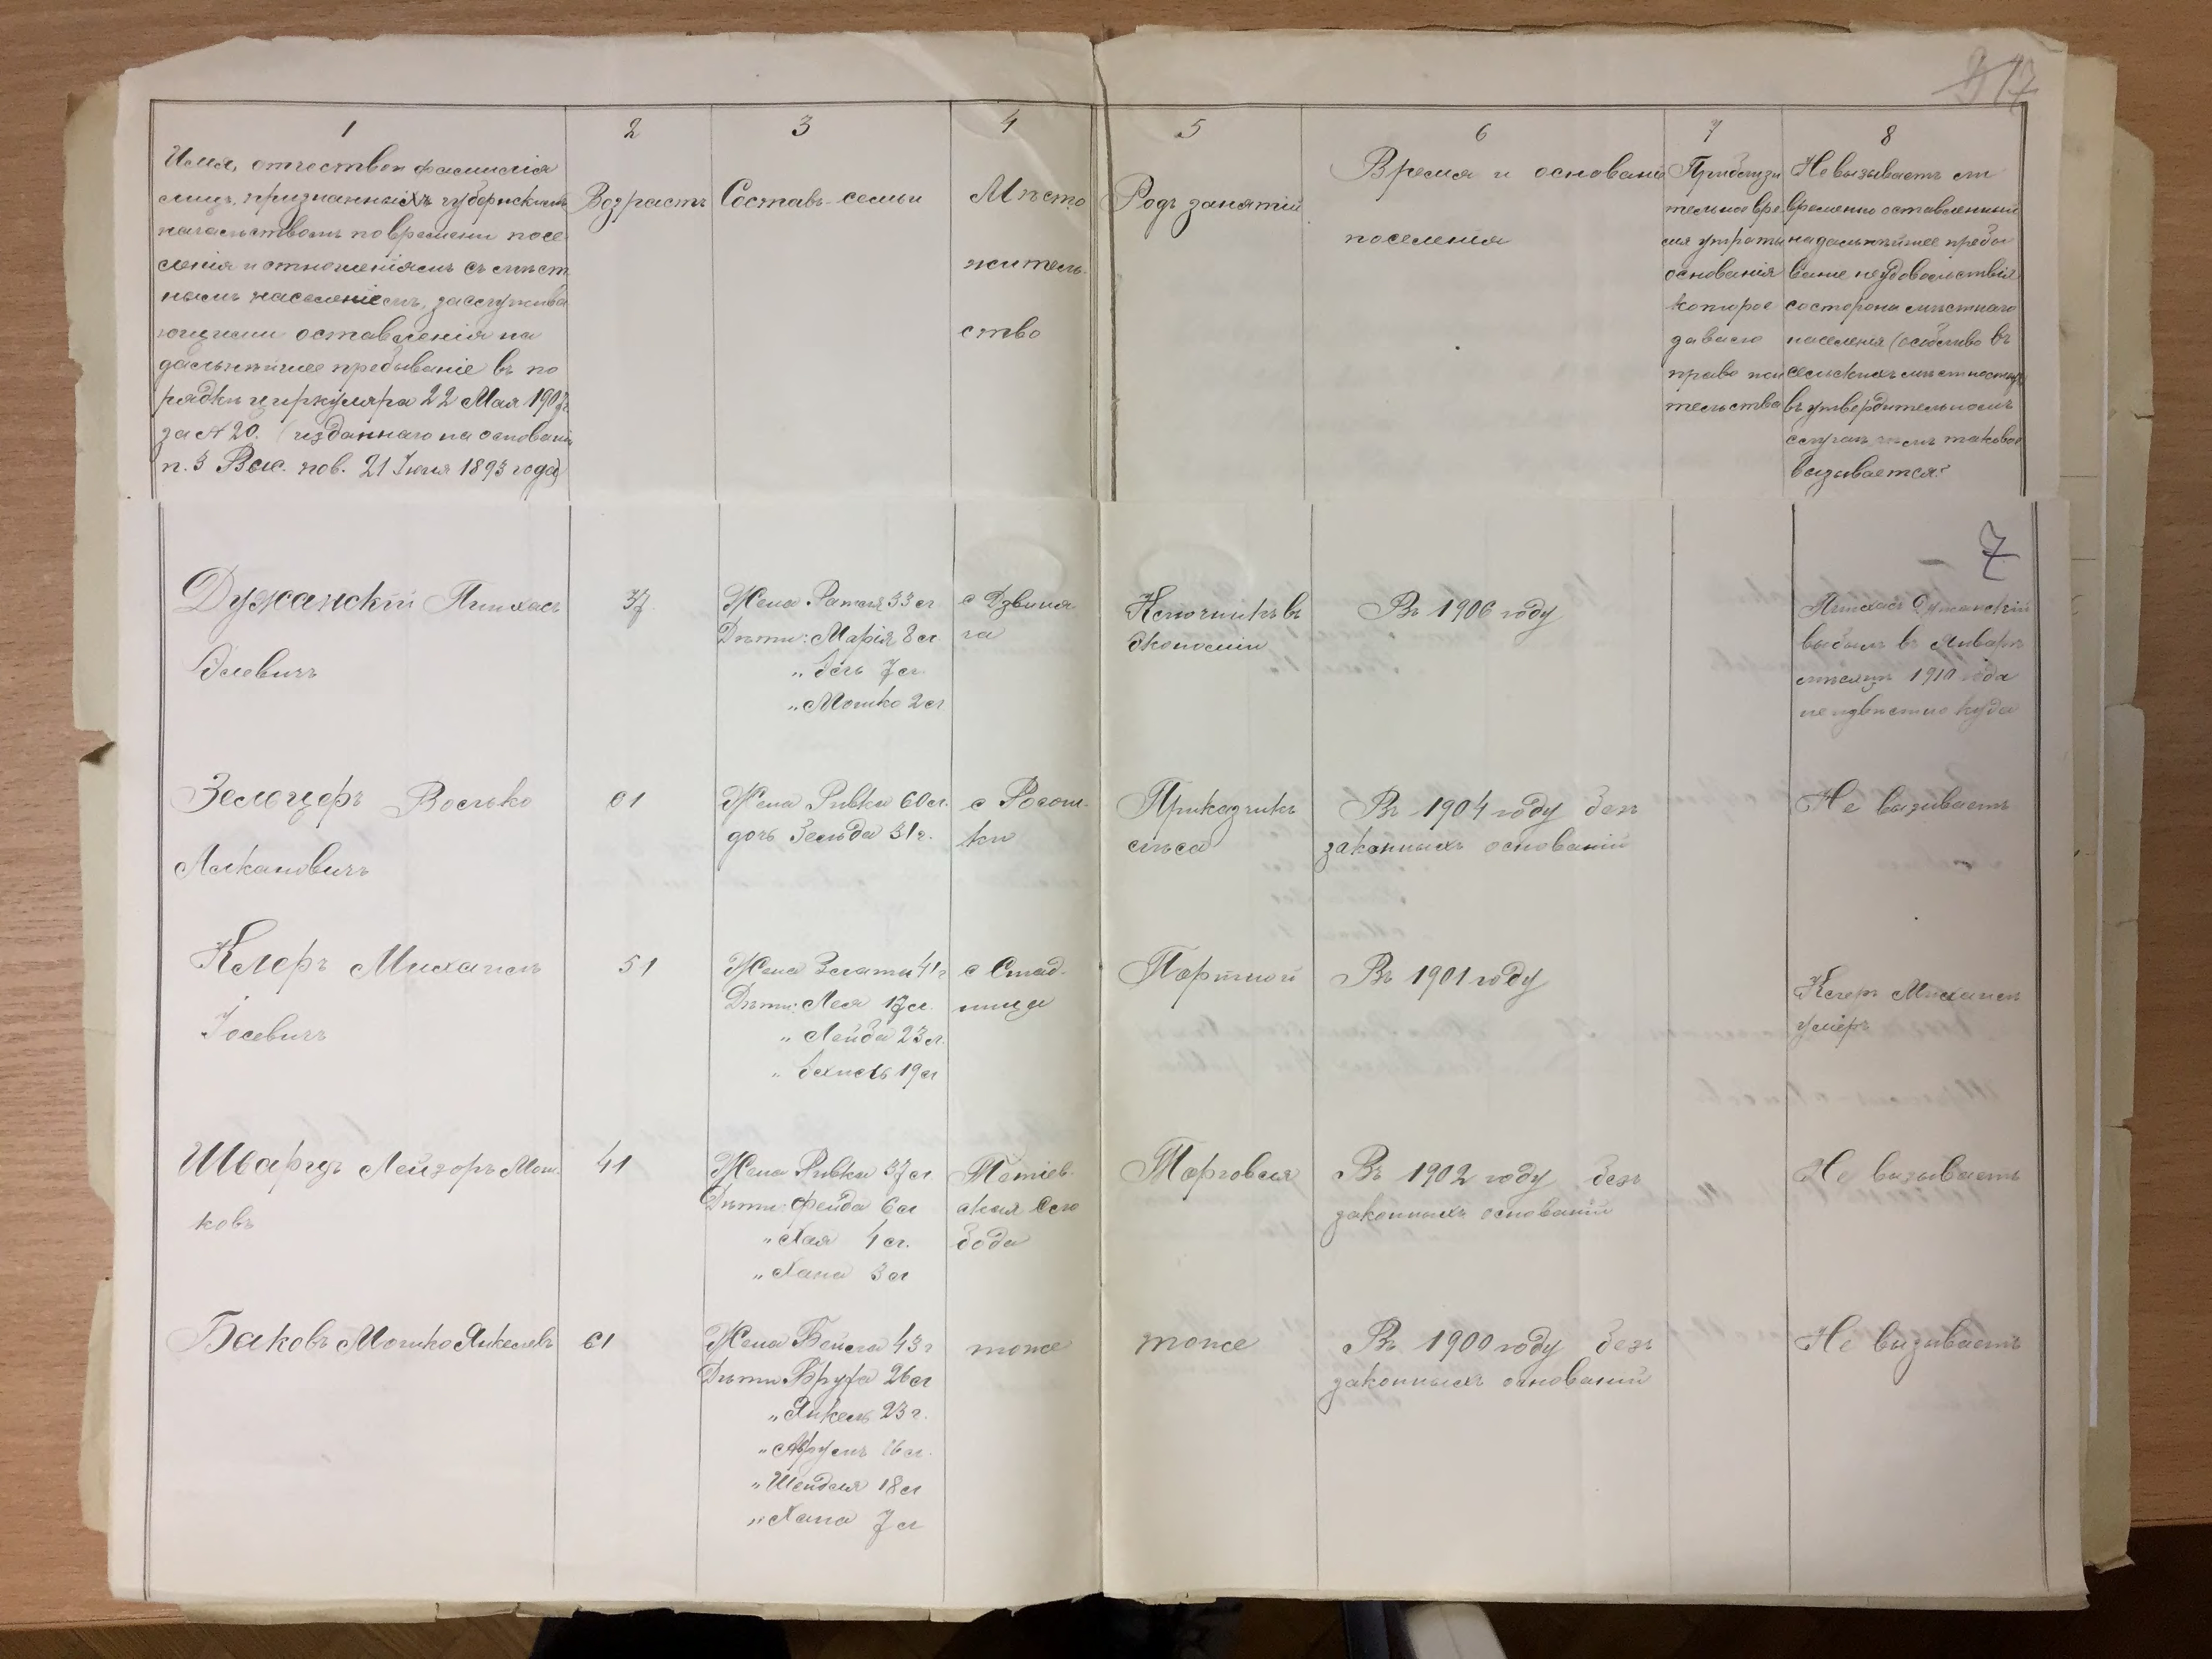 17
1
2
3
4
5
6
7
8
Имя, отчество и фамилія
лицъ, признанныхъ губернскимъ
начальствомъ по времени посе
ленія и отношеніямъ съ мѣст
нымъ населеніемъ, заслужива
ющими оставленія на
дальнѣйшее пребываніе въ по
рядкѣ циркуляра 22 Мая 1907 г.
за № 20. (изданнаго на основаніи
п. 3 Выс. пов. 21 Іюля 1893 года)
Возрастъ
Составъ семьи
Мѣсто
житель
ство
Родъ занятій
Время и основаніе
поселенія
Приблизи
тельное вре
мя утраты
основанія
которое
давало
право жи
тельства
Не вызываетъ ли
временно оставленный
на дальнѣйшее пребы
ваніе неудовольствія
со стороны мѣстнаго
населенія (особливо въ
сельскихъ мѣстностяхъ)
въ утвердительномъ
случаѣ, чѣмъ таковое
вызывается?
7
Дужанскій Пинхасъ
Элевичъ
37
Жена Рахиля 33 л
Дѣти: Марія 8 л.
" Эсть 7 л.
" Мошко 2 л
с Дзвиня
ча
Ключникъ въ
Экономіи
Въ 1906 году
Пинхасъ Дужанскій
выбылъ въ Январѣ
мѣсяцѣ 1910 года
неизвѣстно куда
Зельцеръ Волько
61
Жена Ривка 60 л.
дочь Зельда 31 г.
с Розош
ки
Приказчикъ
лѣса
Въ 1904 году безъ
законныхъ основаній
Не вызываетъ
Клеръ Михаиль
Іосевичъ
51
Жена Злата 41 г
Дѣти: Лея 17 л.
" Лейба 23 л.
" 19 л
с Стад
ница
Портной
Въ 1901 году
Клеръ Михаиль
умеръ
Шварцъ Лейзоръ Мош
ковъ
41
Жена Ривка 37 л
Дѣти: Фейда 6 л
" Хая 4 л.
" Хана 3 л
Тетіев
ская Сло
бода
Торговля
Въ 1902 году безъ
законныхъ основаній
Не вызываетъ
Баковъ Мошко Янкелевъ
61
Жена Бейла 43 г
Дѣти 26 л
" Янкель 23 г.
" 16 л.
" Шейдля 18 л
" Хана 7 л
тоже
тоже
Въ 1900 году безъ
законныхъ основаній
Не вызываетъ